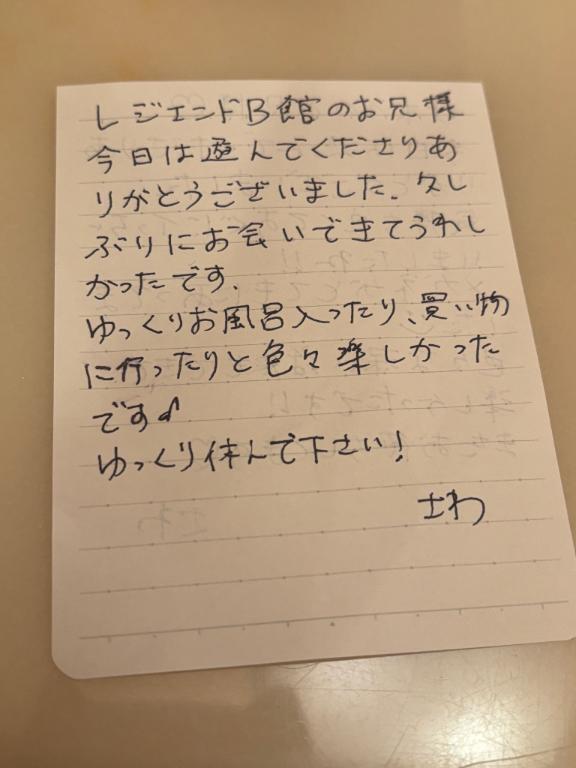 レジェンドB館のお兄様
今日は遊んでくださりあ
りがとうございました。久し
ぶりにお会いできてうれし
かったです。
ゆっくりお風呂入ったり、買い物
に行ったりと色々楽しかった
です♪
ゆっくり休んで下さい！
さわ